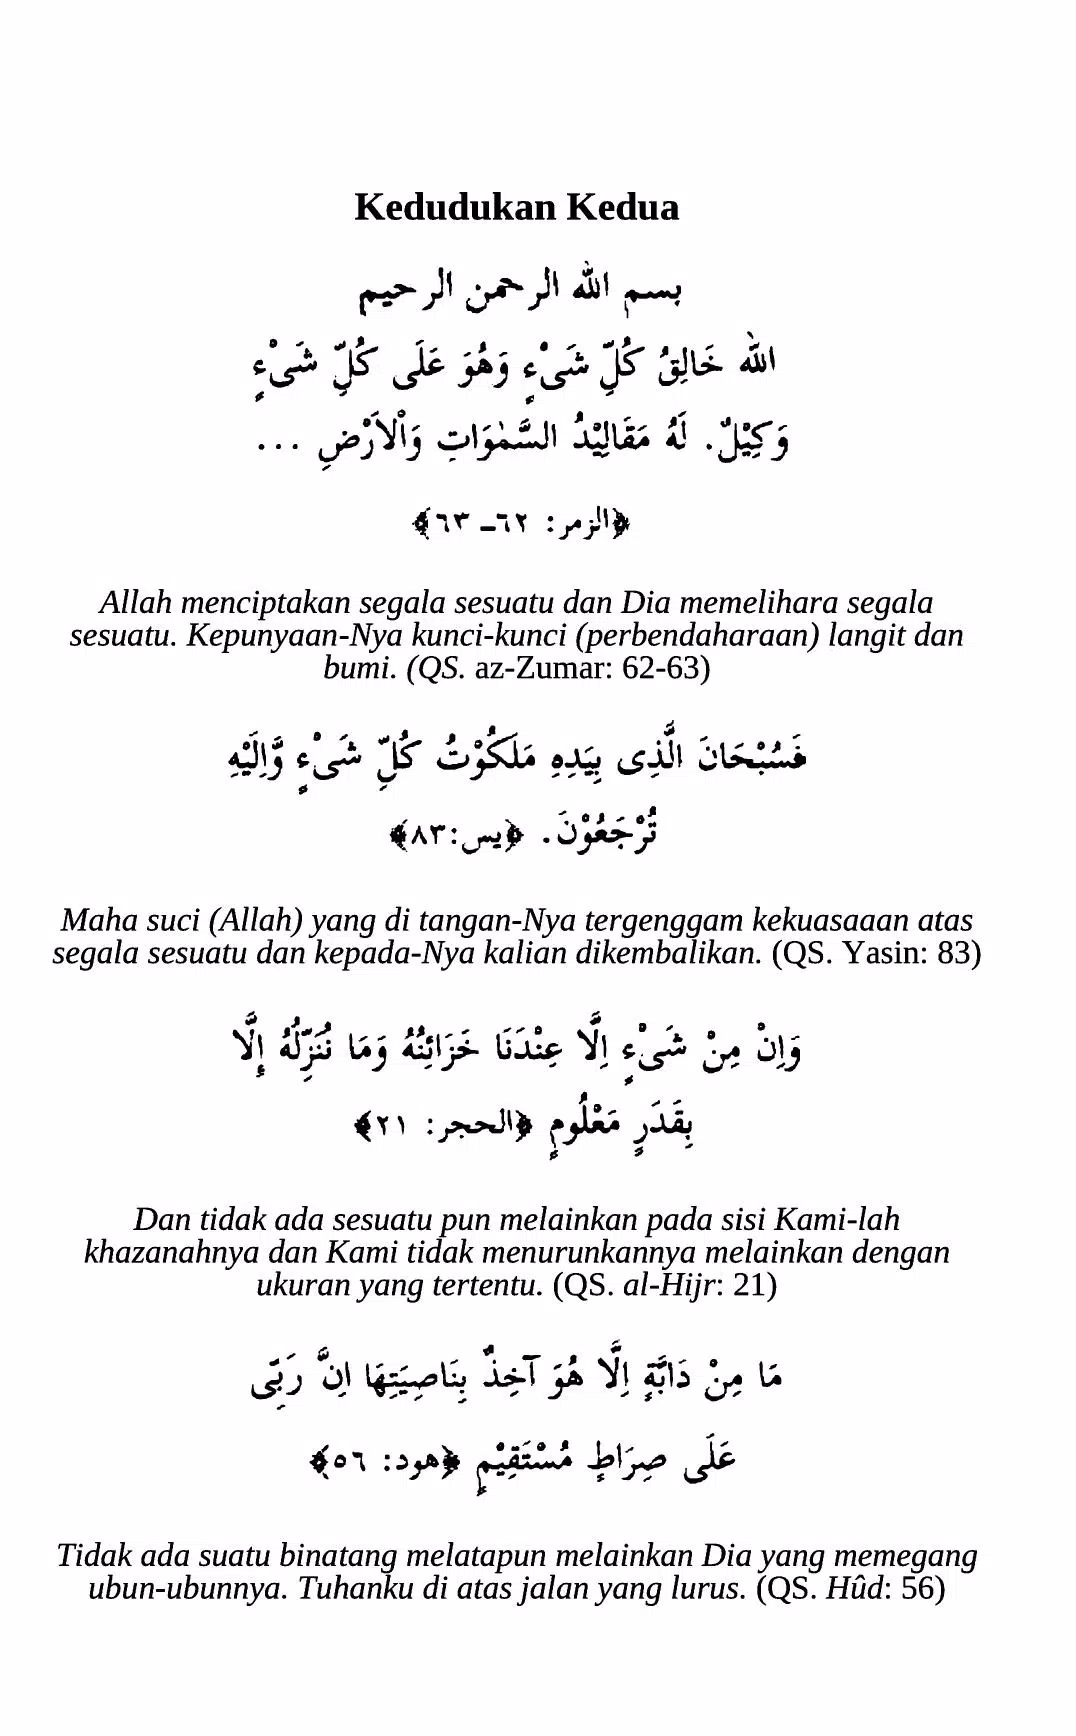 Kedudukan Kedua
بسم الله الرحمن الرحيم
اللّٰه خَالِقُ كُلِّ شَىْءٍ وَهُوَ عَلَى كُلِّ شَىْءٍ
وَكِيْلٌ. لَهُ مَقَالِيْدُ السَّمٰوَاتِ وَاْلاَرْضِ ...
﴿الزمر: ٦٢ـ ٦٣﴾
Allah menciptakan segala sesuatu dan Dia memelihara segala
sesuatu. Kepunyaan-Nya kunci-kunci (perbendaharaan) langit dan
bumi. (QS. az-Zumar: 62-63)
فَسُبْحَانَ الَّذِى بِيَدِهِ مَلَكُوْتُ كُلِّ شَىْءٍ وَّاِلَيْهِ
تُرْجَعُوْنَ. ﴿يس:٨٣﴾
Maha suci (Allah) yang di tangan-Nya tergenggam kekuasaaan atas
segala sesuatu dan kepada-Nya kalian dikembalikan. (QS. Yasin: 83)
وَاِنْ مِنْ شَىْءٍ اِلَّا عِنْدَنَا خَزَائِنُهُ وَمَا نُنَزِّلُهُ اِلَّا
بِقَدَرٍ مَعْلُومٍ ﴿الحجر: ٢١﴾
Dan tidak ada sesuatu pun melainkan pada sisi Kami-lah
khazanahnya dan Kami tidak menurunkannya melainkan dengan
ukuran yang tertentu. (QS. al-Hijr: 21)
مَا مِنْ دَابَّةٍ اِلَّا هُوَ آخِذٌ بِنَاصِيَتِهَا اِنَّ رَبِّى
عَلَى صِرَاطٍ مُسْتَقِيْمٍ ﴿هود: ٥٦﴾
Tidak ada suatu binatang melatapun melainkan Dia yang memegang
ubun-ubunnya. Tuhanku di atas jalan yang lurus. (QS. Hûd: 56)